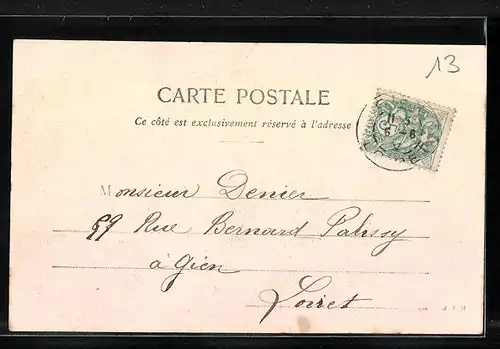 13
CARTE POSTALE
Ce côté est exclusivement réservé à l'adresse
Monsieur Denier
99 Rue Bernard Palissy
à Gien
Loiret